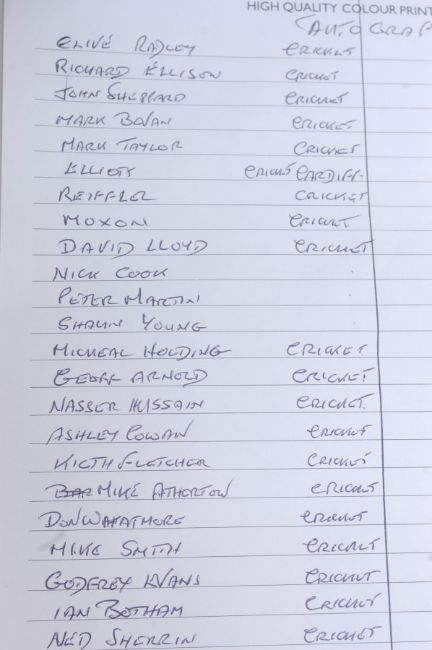 HIGH QUALITY COLOUR PRINT
AUTOGRAP
CLIVE RADLEY CRICKET
RICHARD ELLISON CRICKET
JOHN SHEPPARD CRICKET
MARK BOVAN CRICKET
MARK TAYLOR CRICKET
ELLIOTT CRICKET CARDIFF
REIFFLER CRICKET
MOXON CRICKET
DAVID LLOYD CRICKET
NICK COOK
PETER MARTIN
SHAUN YOUNG
MICHEAL HOLDING CRICKET
GEOFF ARNOLD CRICKET
NASSER HUSSAIN CRICKET
ASHLEY COWAN CRICKET
KIETH FLETCHER CRICKET
MIKE ATHERTON CRICKET
DON WHATMORE CRICKET
MIKE SMITH CRICKET
GODFREY EVANS CRICKET
IAN BOTHAM CRICKET
NED SHERRIN CRICKET